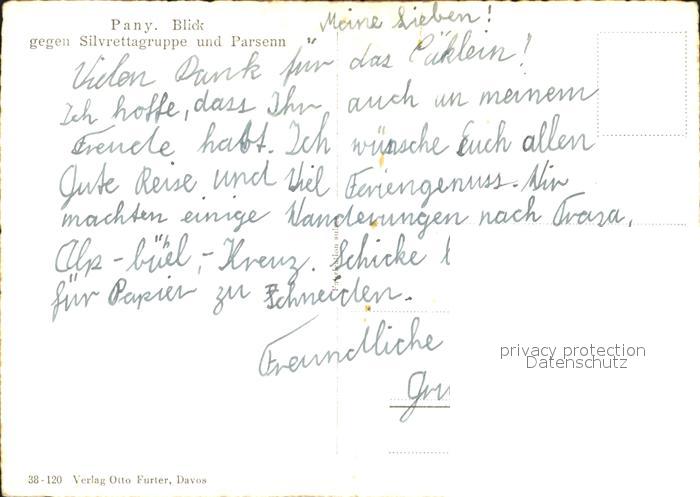 Pany. Blick
gegen Silvrettagruppe und Parsenn
Meine Lieben!
Vielen Dank für das Päklein!
Ich hoffe, dass Ihr auch an meinem
Freude habt. Ich wünsche Euch allen
Gute Reise und Viel Feriengenuss. Wir
machten einige Wanderungen nach
Alp-büel,-Kreuz. Schicke
für Papier zu Schneiden.
Freundliche
privacy protection
Datenschutz
38-120 Verlag Otto Furter, Davos